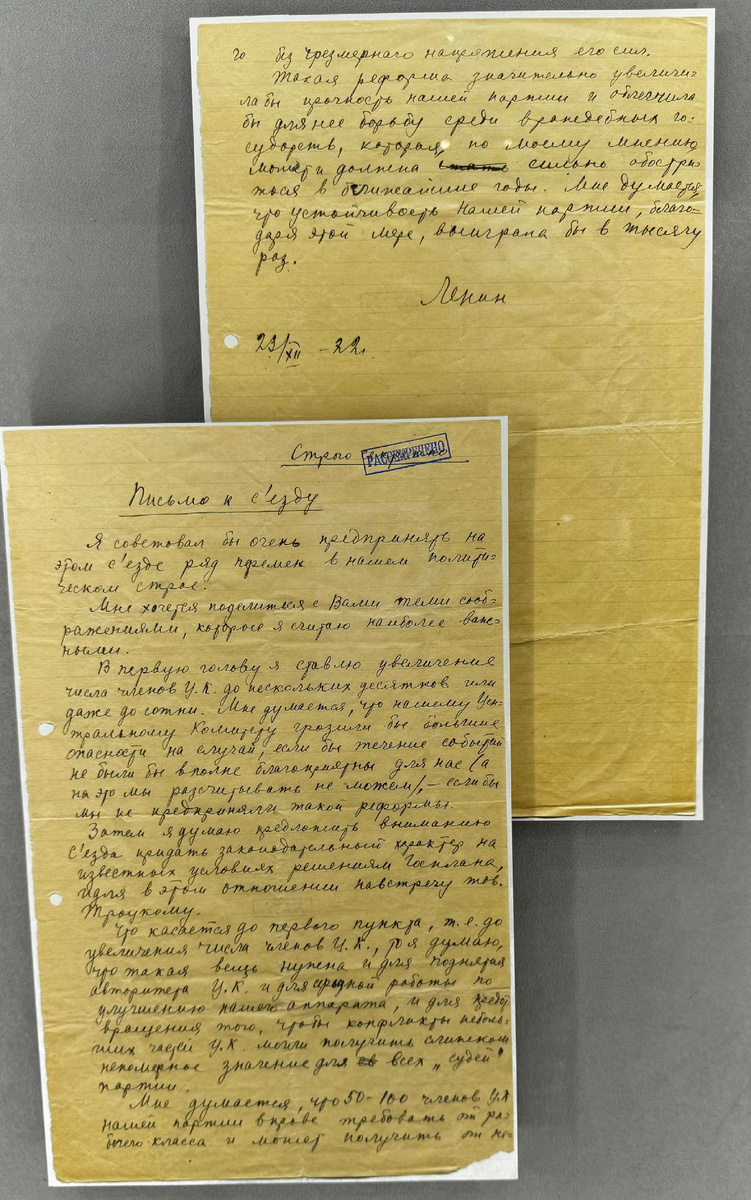 Строго
РАССЕКРЕЧЕНО
Письмо к с'езду
Я советовал бы очень предпринять на
этом с'езде ряд перемен в нашем полити-
ческом строе.
Мне хочется поделиться с Вами теми сооб-
ражениями, которое я считаю наиболее важ-
ными.
В первую голову я ставлю увеличение
числа членов Ц.К. до нескольких десятков или
даже до сотни. Мне думается, что нашему Цен-
тральному Комитету грозили бы большие
опасности на случай, если бы течение событий
не были бы вполне благоприятны для нас (а
на это мы рассчитывать не можем), – если бы
мы не предприняли такой реформы.
Затем я думаю предложить вниманию
с'езда придать законодательный характер на
известных условиях решениям Госплана,
идя в этом отношении навстречу тов.
Троцкому.
Что касается до первого пункта, т.е. до
увеличения числа членов Ц.К., то я думаю,
что такая вещь нужна и для поднятия
авторитета Ц.К. и для работы по
улучшению нашего аппарата, и для предот-
вращения того, чтобы конфликты неболь-
ших частей Ц.К. могли получить слишком
непомерное значение для всех „судеб"
партии.
Мне думается, что 50-100 членов Ц.К
нашей партии вправе требовать от ра-
бочего класса и может получить от не-
го без чрезмернаго напряжения его сил.
Такая реформа значительно увеличи-
ла бы прочность нашей партии и облегчила
бы для нее борьбу среди враждебных го-
сударств, которая, по моему мнению
может и должна сильно обостри-
ться в ближайшие годы. Мне думается,
что устойчивость нашей партии, благо-
даря этой мере, выиграла бы в тысячу
раз.
Ленин
23/XII – 22г.